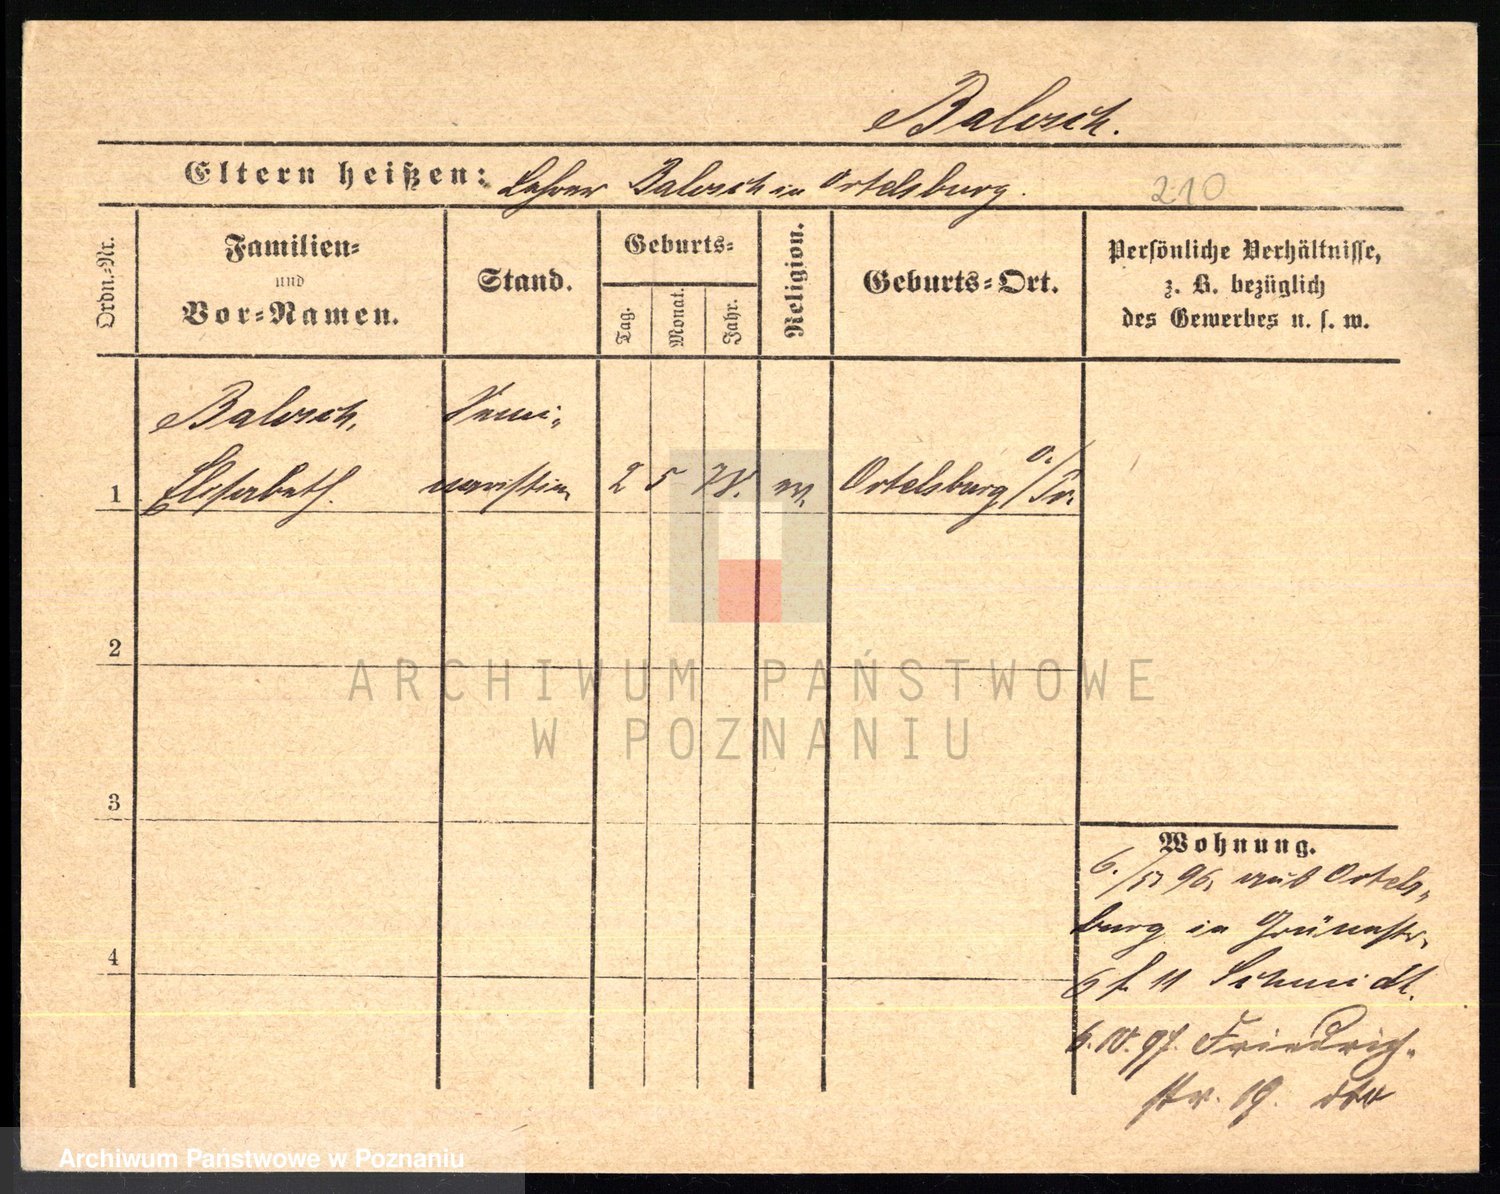 Balosch.
Eltern heißen: Lehrer Balosch in Ortelsburg.
210
Ordn.=Nr.
Familien=
und
Vor=Namen.
Stand.
Geburts=
Tag.
Monat.
Jahr.
Religion.
Geburts=Ort.
Persönliche Verhältnisse,
z. B. bezüglich
des Gewerbes u. s. w.
Balosch, Semi=
1 Elisabeth. naristin 2 5 78. ev. Ortelsburg O./Pr.
2
3
4
Wohnung.
6./5 96. aus Ortels=
burg in Grünestr.
6 Schmidt.
6. 10. 97. Friedrich=
str. 19. dto
ARCHIWUM PAŃSTWOWE
W POZNANIU
Archiwum Państwowe w Poznaniu